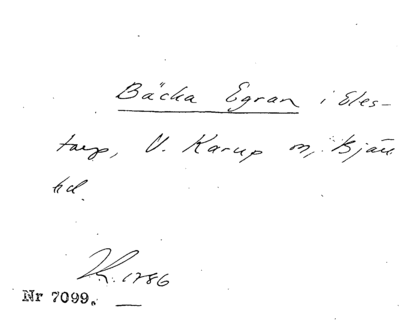 Bäcka Egran i Eles-
tarp, V. Karup sn, Bjäre
hd.
1786
Nr 7099.